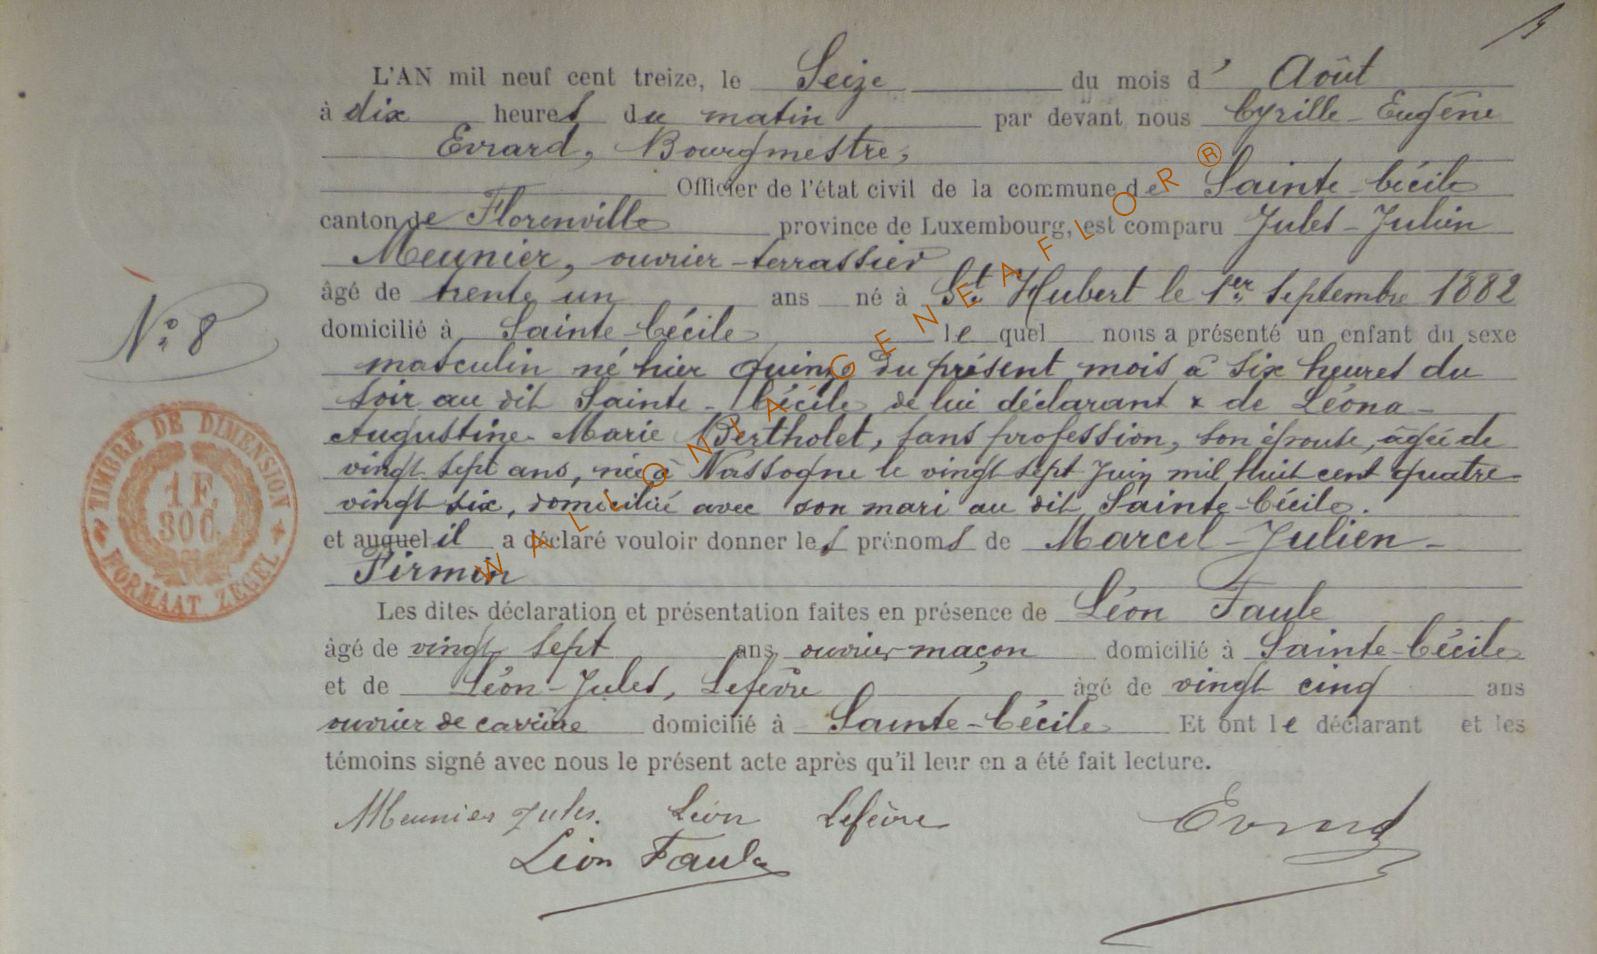 L'AN mil neuf cent treize, le Seize du mois d' Août
à dix heures du matin par devant nous Cyrille-Eugène
Evrard, Bourgmestre,
Officier de l'état civil de la commune de Sainte-Cécile
canton de Florenville province de Luxembourg, est comparu Jules-Julien
Meunier, ouvrier-terrassier
âgé de trente un ans né à St. Hubert le 1er Septembre 1882
N° 8
domicilié à Sainte-Cécile lequel nous a présenté un enfant du sexe
masculin né hier quinze du présent mois à six heures du
soir au dit Sainte-Cécile de lui déclarant & de Léona-
Augustine-Marie Bertholet, sans profession, son épouse, âgée de
vingt sept ans, née à Nassogne le vingt sept Juin mil huit cent quatre-
vingt six, domiciliée avec son mari au dit Sainte-Cécile.
et auquel il a déclaré vouloir donner les prénoms de Marcel-Julien-
Firmin
Les dites déclaration et présentation faites en présence de Léon Faule
âgé de vingt sept ans ouvrier maçon domicilié à Sainte-Cécile
et de Léon-Jules, Lefèvre âgé de vingt cinq ans
ouvrier de carrière domicilié à Sainte-Cécile Et ont le déclarant et les
témoins signé avec nous le présent acte après qu'il leur en a été fait lecture.
Meunier Jules. Léon Lefèvre Evrard
Léon Faule
TIMBRE DE DIMENSION
1 F.
30 C.
FORMAAT ZEGEL
WALLONIA GENEAFLOR®